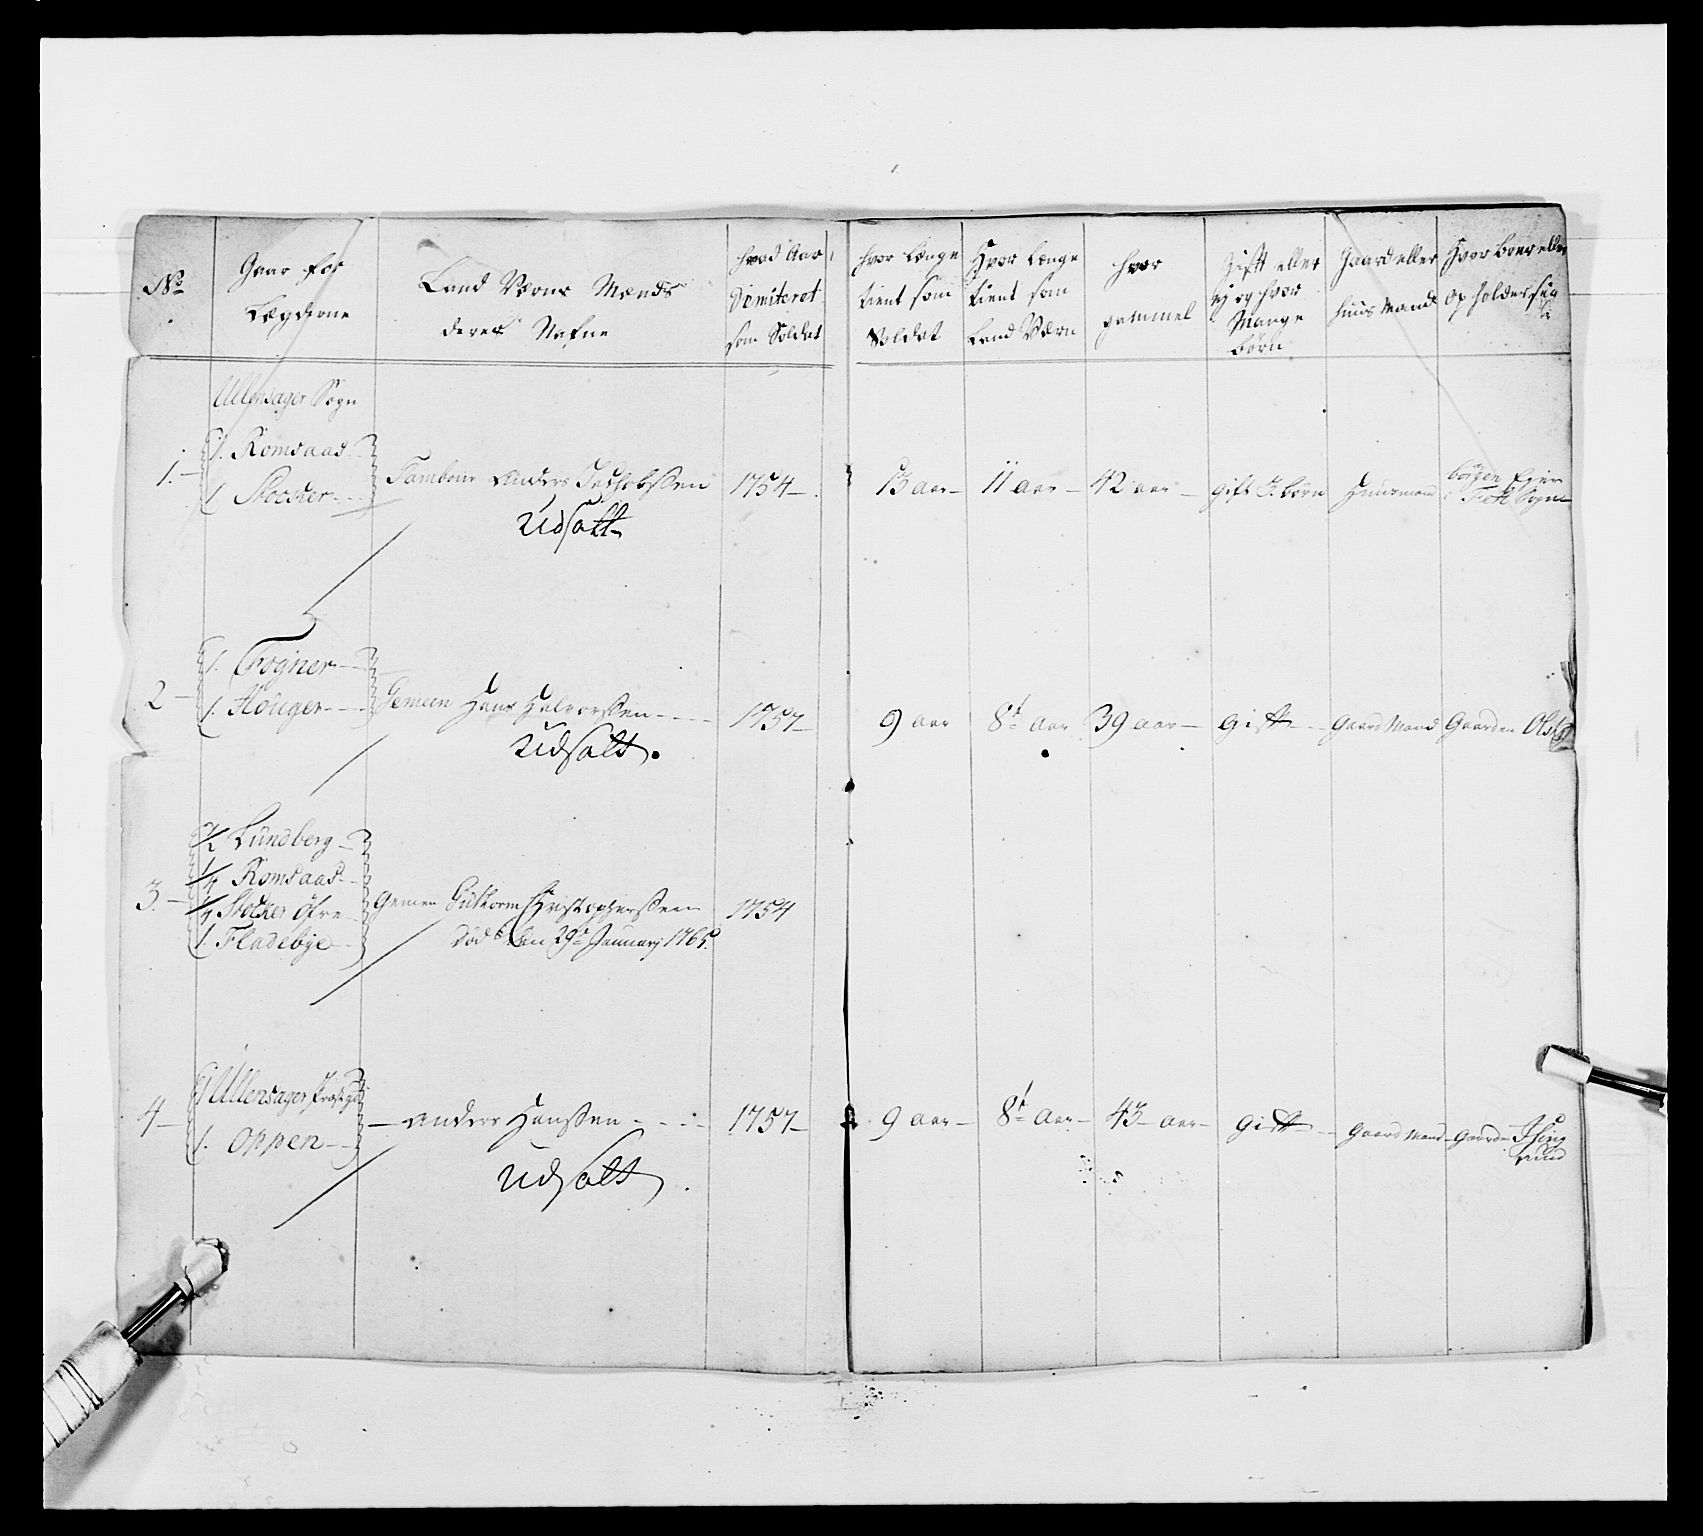 No
Gaar for
Lægderne
Land Værns Mænds
deres Nafne
hvad Aar
Dimiteret
som Soldat
hvor længe
tient som
Soldat
Hvor længe
tient som
Land Værn
hvor
gammel
Gift eller
ey og hvor
Mange
børn
Gaard eller
Huus Mand
Hvor boer eller
opholder sig
Ullensager Sogn
1.
1. Romsaas
1. Stocker
Tambour Anders Jachobsen
1754
13 aar
11 aar
42 aar
gift 3. børn
Huusmand
Sogn
Udsatt
2
1. Trogner
1. Houger
Gemeen Hans Halvorsen
1757
9 aar
8t aar
39 aar
Gift
Gaard Mand
Gaarden
Udsatt.
3.
1/2 Lundberg
1/4 Romsaas
1/4 Stocker Øfre
1. Fladebye
Gemen Guttorm Christophersen
1754
Død den 29de Januarj 1765.
4
1 Ullensager Præstgd
1. Oppen
Anders Hansen
1757
9 aar
8t aar
43 aar
Gift
Gaard Mand
Gaarden
Udsatt